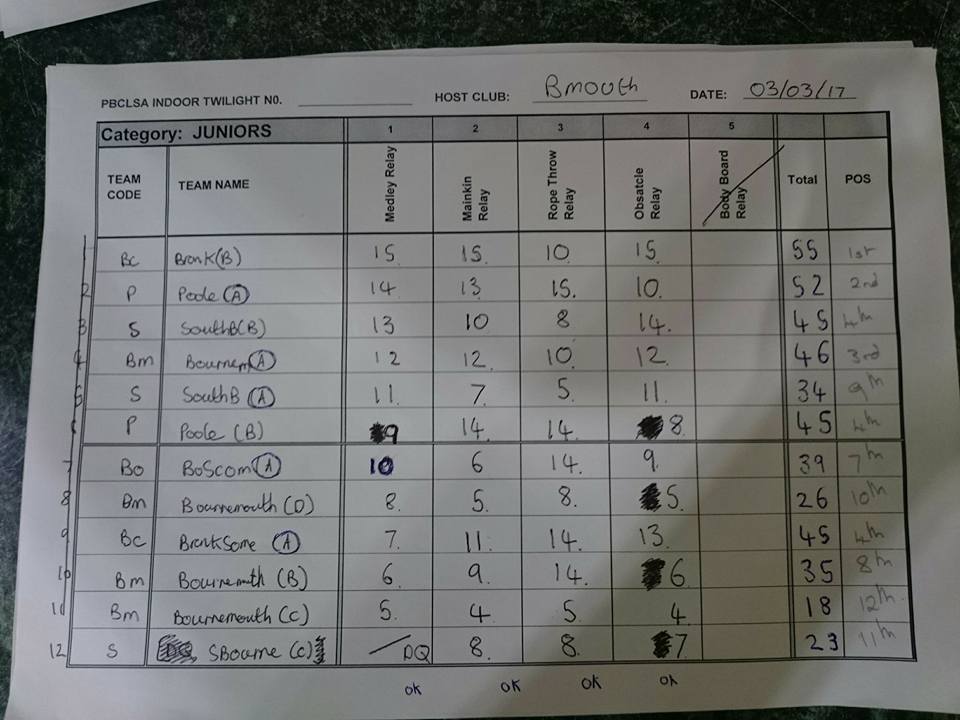 PBCLSA INDOOR TWILIGHT N0. HOST CLUB: Bmouth DATE: 03/03/17
Category: JUNIORS 1 2 3 4 5
TEAM CODE TEAM NAME Medley Relay Mainkin Relay Rope Throw Relay Obsatcle Relay Body Board Relay Total POS
1 Bc Brank(B) 15 15 10 15 55 1st
2 P Poole (A) 14 13 15 10 52 2nd
3 S SouthB(B) 13 10 8 14 45 4th
4 Bm Bournem(A) 12 12 10 12 46 3rd
5 S SouthB (A) 11 7 5 11 34 9th
6 P Poole (B) 9 14 14 8 45 4th
7 Bo BoScom(A) 10 6 14 9 39 7th
8 Bm Bournemouth (D) 8 5 8 5 26 10th
9 Bc BrankSome (A) 7 11 14 13 45 4th
10 Bm Bournemth (B) 6 9 14 6 35 8th
11 Bm Bournemouth (C) 5 4 5 4 18 12th
12 S SBourne (C) DQ 8 8 7 23 11th
OK OK OK OK